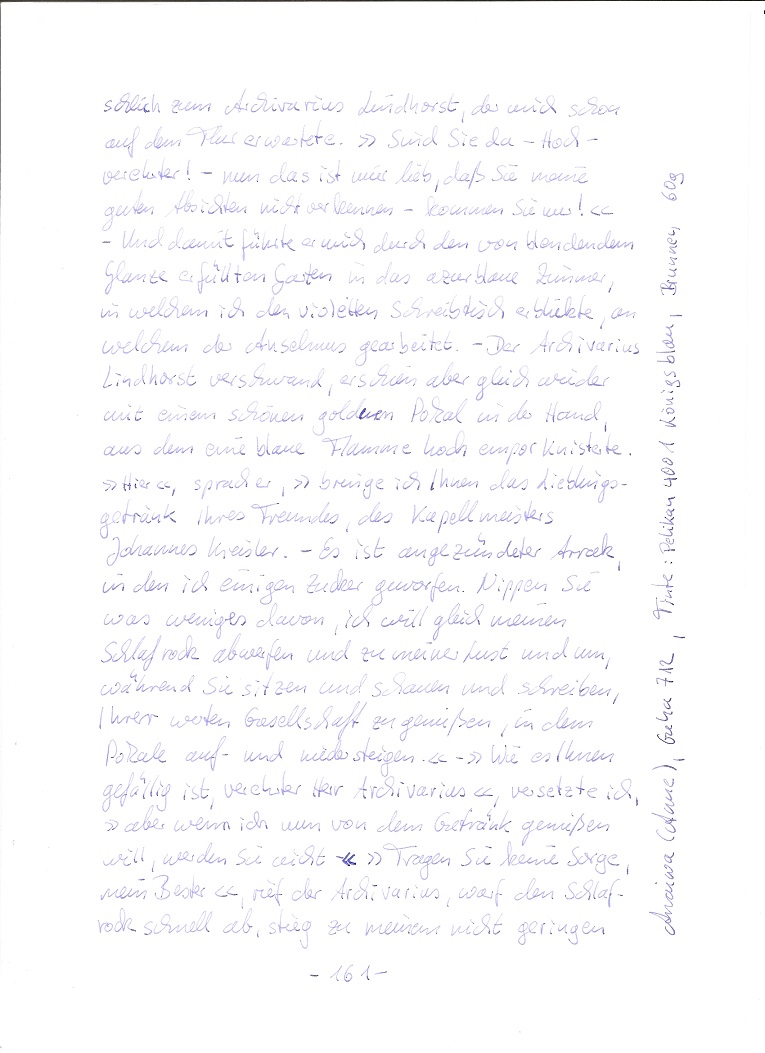 schlich zum Archivarius Lindhorst, der mich schon
auf dem Flur erwartete. » Sind Sie da – Hoch-
verehrter! – nun das ist mir lieb, daß Sie meine
guten Absichten nicht verkennen – kommen Sie nur! «
– Und damit führte er mich durch den von blendendem
Glanze erfüllten Garten in das azurblaue Zimmer,
in welchem ich den violetten Schreibtisch erblickte, an
welchem der Anselmus gearbeitet. – Der Archivarius
Lindhorst verschwand, erschien aber gleich wieder
mit einem schönen goldenen Pokal in der Hand,
aus dem eine blaue Flamme hoch empor knisterte.
» Hier «, sprach er, » bringe ich Ihnen das Lieblings-
getränk Ihres Freundes, des Kapellmeisters
Johannes Kreisler. – Es ist angezündeter Arrak,
in den ich einigen Zucker geworfen. Nippen Sie
was weniges davon, ich will gleich meinen
Schlafrock abwerfen und zu meiner Lust und um,
während Sie sitzen und schauen und schreiben,
Ihrer werten Gesellschaft zu genießen, in dem
Pokale auf- und niedersteigen. « – » Wie es Ihnen
gefällig ist, verehrter Herr Archivarius «, versetzte ich,
» aber wenn ich nun von dem Getränk genießen
will, werden Sie nicht – « » Tragen Sie keine Sorge,
mein Bester «, rief der Archivarius, warf den Schlaf-
rock schnell ab, stieg zu meinem nicht geringen
– 161 –
712, Tinte: Pelikan 4001 Königsblau, Brunnen 60g